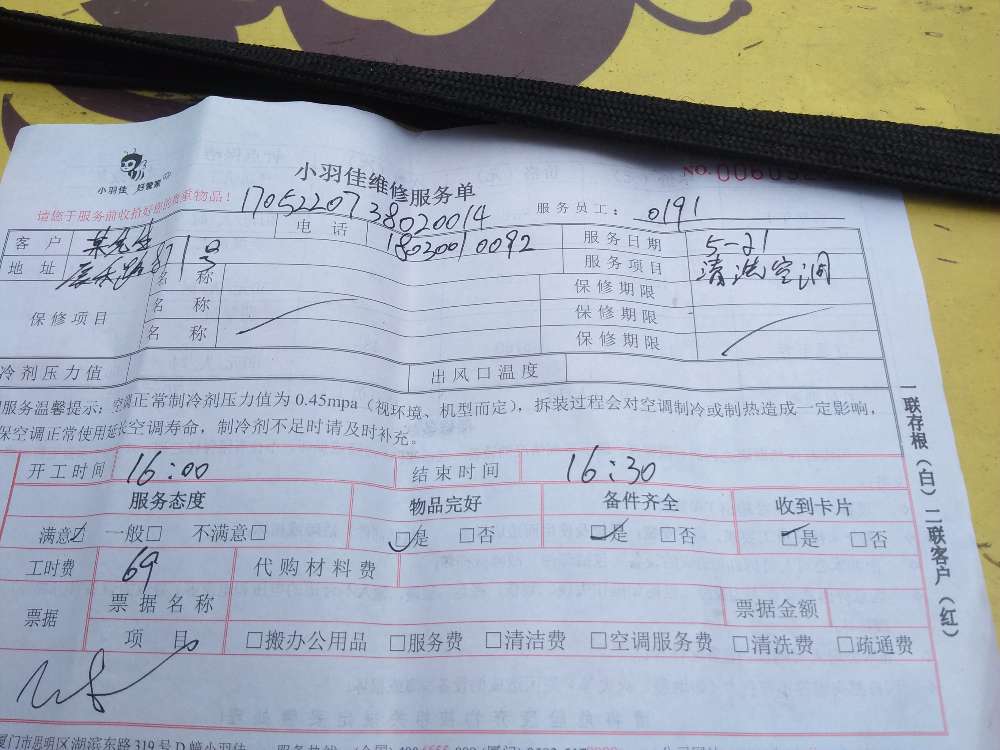 小羽佳 好管家
小羽佳维修服务单
NO. 0060
请您于服务前收拾好您的贵重物品！
1705220738020014
服务员工：0191
客 户 某先生 电 话 18030010092 服务日期 5-21
地 址 号 服务项目 清洗空调
保修项目
名 称 保修期限
名 称 保修期限
名 称 保修期限
冷剂压力值 出风口温度
服务温馨提示：空调正常制冷剂压力值为 0.45mpa（视环境、机型而定），拆装过程会对空调制冷或制热造成一定影响，
保空调正常使用延长空调寿命，制冷剂不足时请及时补充。
开工时间 16:00 结束时间 16:30
服务态度 物品完好 备件齐全 收到卡片
满意☑ 一般□ 不满意□ ☑是 □否 ☑是 □否 ☑是 □否
工时费 69 代购材料费
票据 票据名称 票据金额
项 目 □搬办公用品 □服务费 □清洁费 □空调服务费 □清洗费 □疏通费
一联存根（白）二联客户（红）
厦门市思明区湖滨东路 319 号 D 幢小羽佳